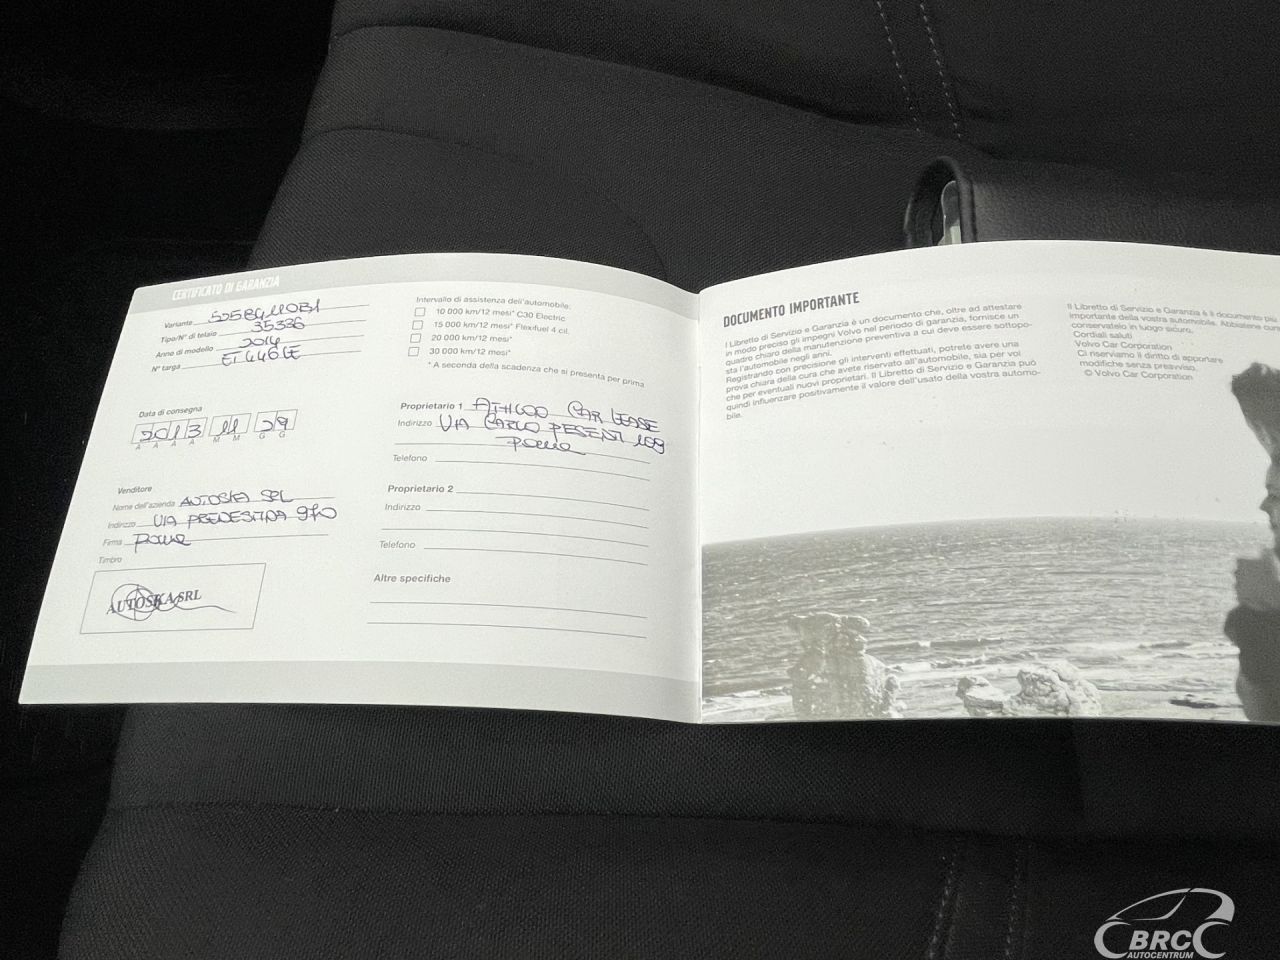 CERTIFICATO DI GARANZIA
Variante
Tipo/N° di telaio 35336
Anno di modello 2014
N° targa
Data di consegna
2013 11 29
A A A A M M G G
Venditore
Nome dell'azienda AUTOSKA SRL
Indirizzo VIA PRENESTINA 970
Firma Roma
Timbro
AUTOSKA SRL
Intervallo di assistenza dell'automobile:
10 000 km/12 mesi* C30 Electric
15 000 km/12 mesi* Flexfuel 4 cil.
20 000 km/12 mesi*
30 000 km/12 mesi*
* A seconda della scadenza che si presenta per prima
Proprietario 1 CAR LEASE
Indirizzo VIA CARLO PESENTI 109
Roma
Telefono
Proprietario 2
Indirizzo
Telefono
Altre specifiche
DOCUMENTO IMPORTANTE
l Libretto di Servizio e Garanzia è un documento che, oltre ad attestare
in modo preciso gli impegni Volvo nel periodo di garanzia, fornisce un
quadro chiaro della manutenzione preventiva a cui deve essere sottopo-
sta l'automobile negli anni.
Registrando con precisione gli interventi effettuati, potrete avere una
prova chiara della cura che avete riservato all'automobile, sia per voi
che per eventuali nuovi proprietari. Il Libretto di Servizio e Garanzia può
quindi influenzare positivamente il valore dell'usato della vostra automo-
bile.
Il Libretto di Servizio e Garanzia è il documento più
importante della vostra automobile. Abbiatene
conservatelo in luogo sicuro.
Cordiali saluti
Volvo Car Corporation
Ci riserviamo il diritto di apportare
modifiche senza preavviso.
© Volvo Car Corporation
BRC
AUTOCENTRUM